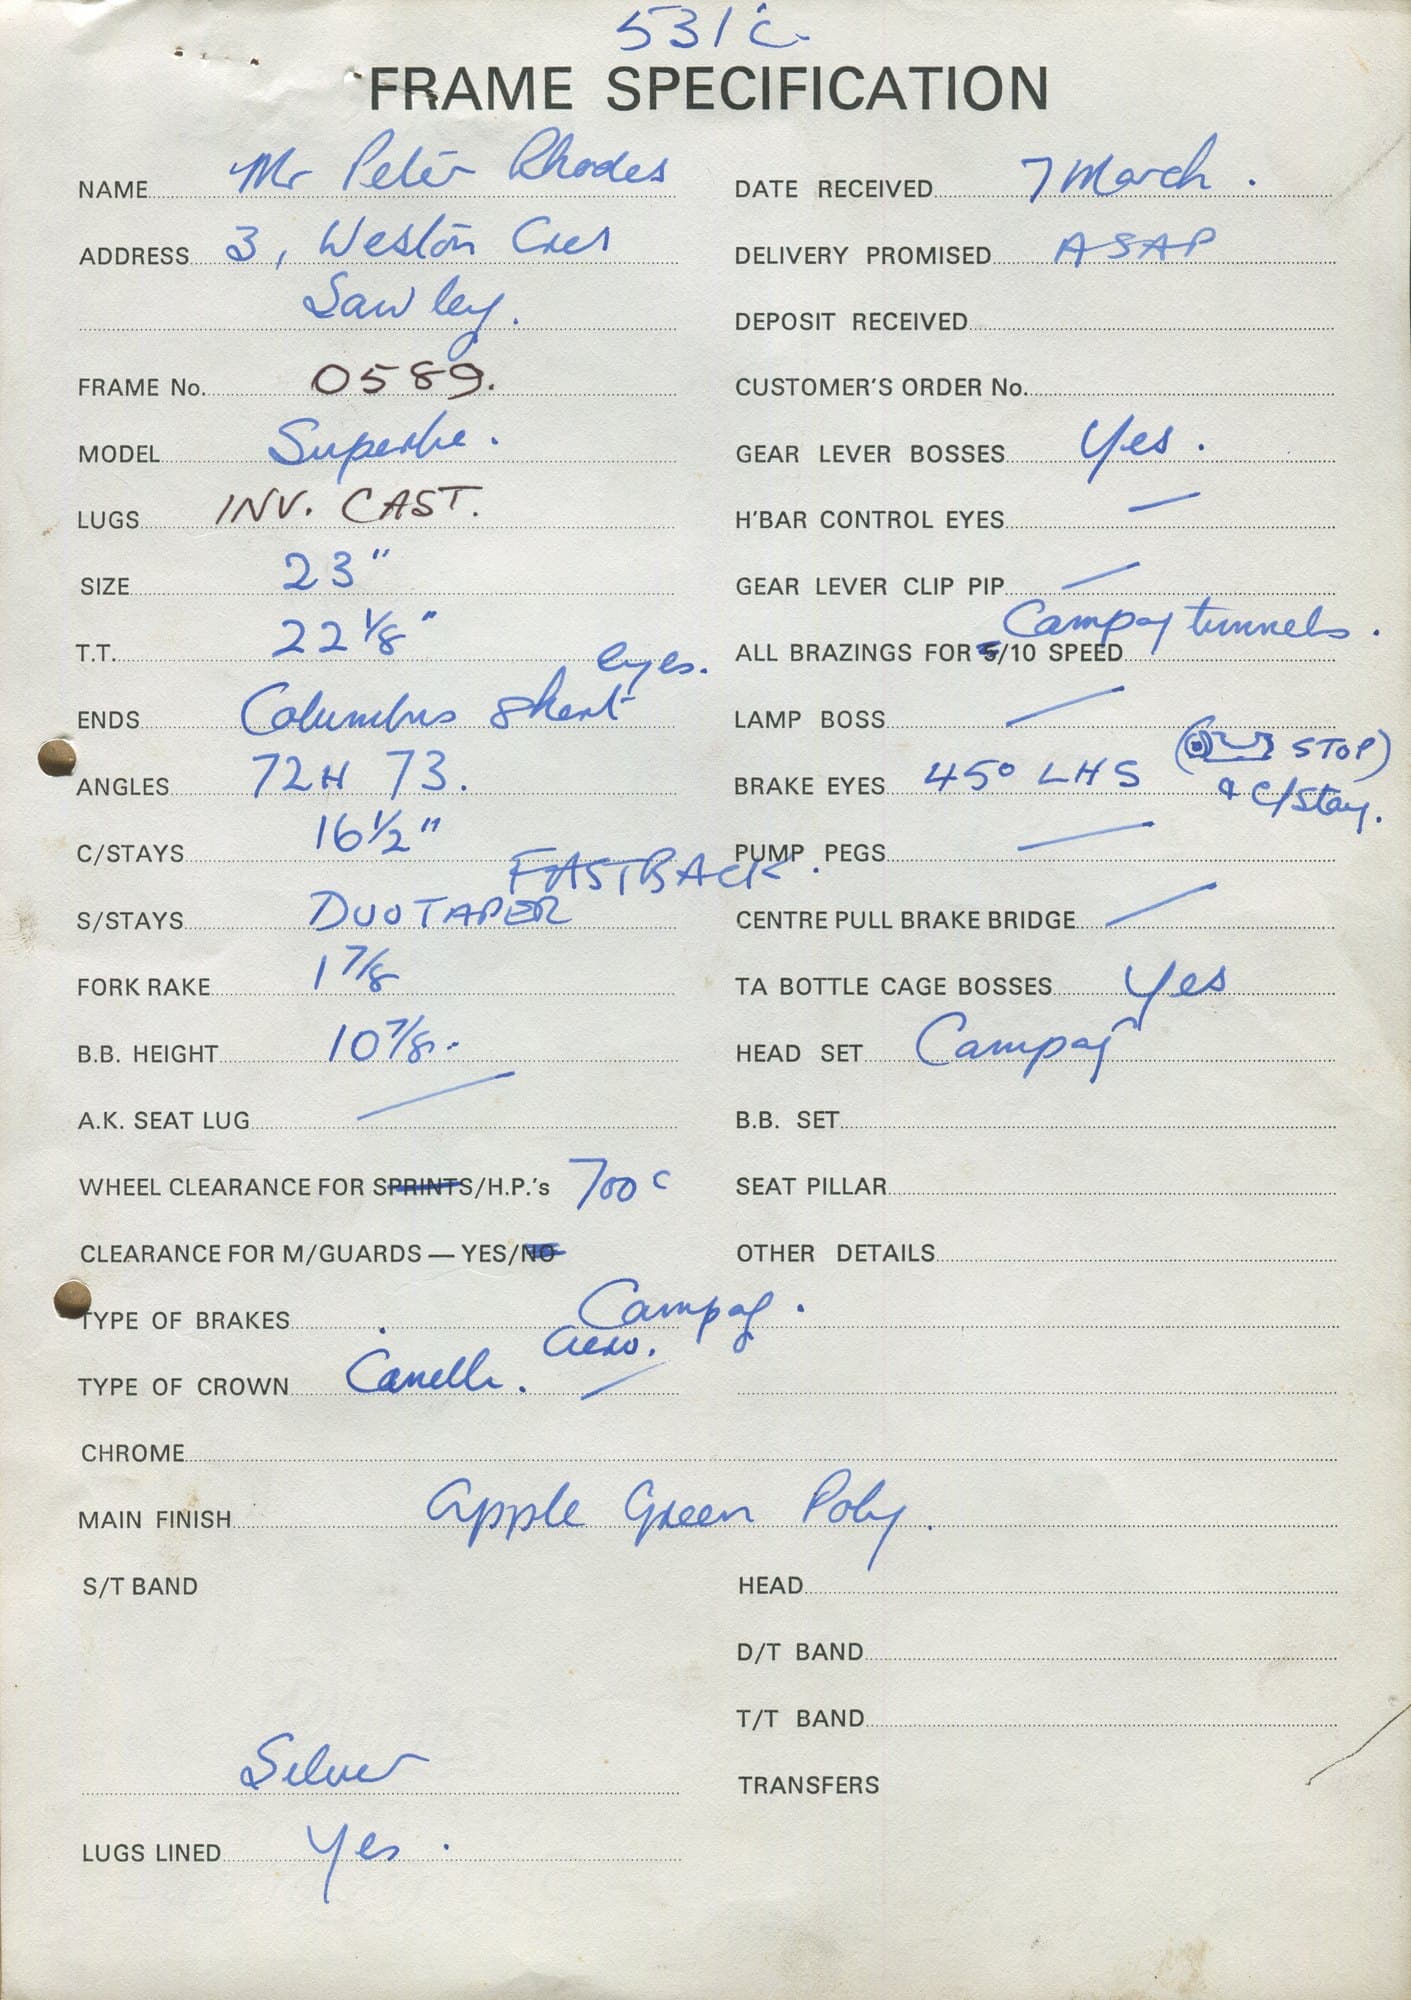 531c
FRAME SPECIFICATION
NAME Mr Peter Rhodes
ADDRESS 3, Weston Cres
Sawley.
FRAME No. 0589.
MODEL Superbe.
LUGS INV. CAST.
SIZE 23"
T.T. 22 1/8"
ENDS Columbus short eyes.
ANGLES 72H 73.
C/STAYS 16 1/2"
S/STAYS DUOTAPER FASTBACK.
FORK RAKE 1 7/8
B.B. HEIGHT 10 7/8.
A.K. SEAT LUG —
WHEEL CLEARANCE FOR SPRINTS/H.P.'s 700c
CLEARANCE FOR M/GUARDS — YES/NO
TYPE OF BRAKES Campag.
TYPE OF CROWN aero. —
CHROME
MAIN FINISH Apple Green Poly.
S/T BAND
Silver
LUGS LINED Yes.
DATE RECEIVED 7 March.
DELIVERY PROMISED ASAP
DEPOSIT RECEIVED
CUSTOMER'S ORDER No.
GEAR LEVER BOSSES Yes.
H'BAR CONTROL EYES —
GEAR LEVER CLIP PIP —
ALL BRAZINGS FOR 5/10 SPEED Campag tunnels.
LAMP BOSS —
BRAKE EYES 45° LHS (STOP)
& C/Stay.
PUMP PEGS —
CENTRE PULL BRAKE BRIDGE —
TA BOTTLE CAGE BOSSES Yes
HEAD SET Campag
B.B. SET
SEAT PILLAR
OTHER DETAILS
HEAD
D/T BAND
T/T BAND
TRANSFERS